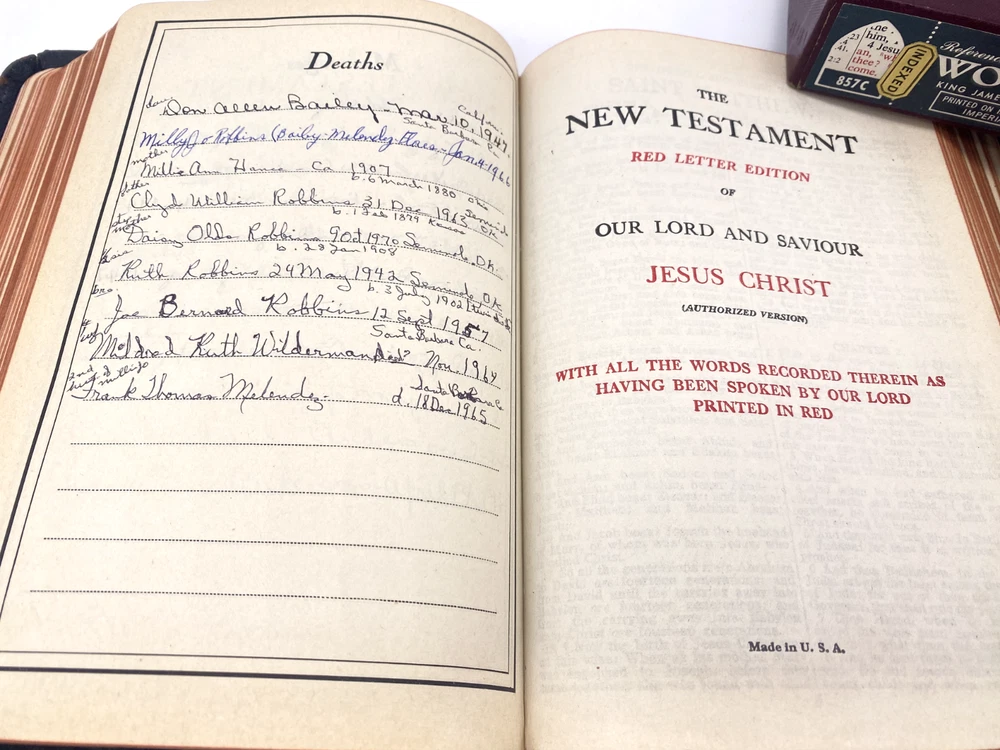 Deaths
Don Allen Bailey - Mar 10, 1947.
Calif.
Santa Barbara
Milly Jo Robbins (Bailey-Melendez- - Jan 4-1966
mother
Millie Ann Ca 1907
b. 6 March 1880
father
Clyd William Robbins 31 Dec 1963 Seminole OK.
b. 1 Feb 1879 Kansas
step mother
Daisy Olds Robbins 9 Oct 1970 Seminole, Ok.
b. 23 Jan 1908
Ruth Robbins 24 May 1942 Seminole OK
b. 3 July 1902
bro.
Joe Bernard Robbins 12 Sept 1957
Santa Barbara Ca.
Mildred Ruth Wilderman Nov. 1964
2nd
Frank Thomas Melendez - d. 18 Dec 1965
Santa Barbara Ca
THE
NEW TESTAMENT
RED LETTER EDITION
OF
OUR LORD AND SAVIOUR
JESUS CHRIST
(AUTHORIZED VERSION)
WITH ALL THE WORDS RECORDED THEREIN AS
HAVING BEEN SPOKEN BY OUR LORD
PRINTED IN RED
Made in U. S. A.
him,
4 Jesu
an,
thee?
come.
857C
INDEXED
Reference
WO
KING JAME
PRINTED ON
IMPERI